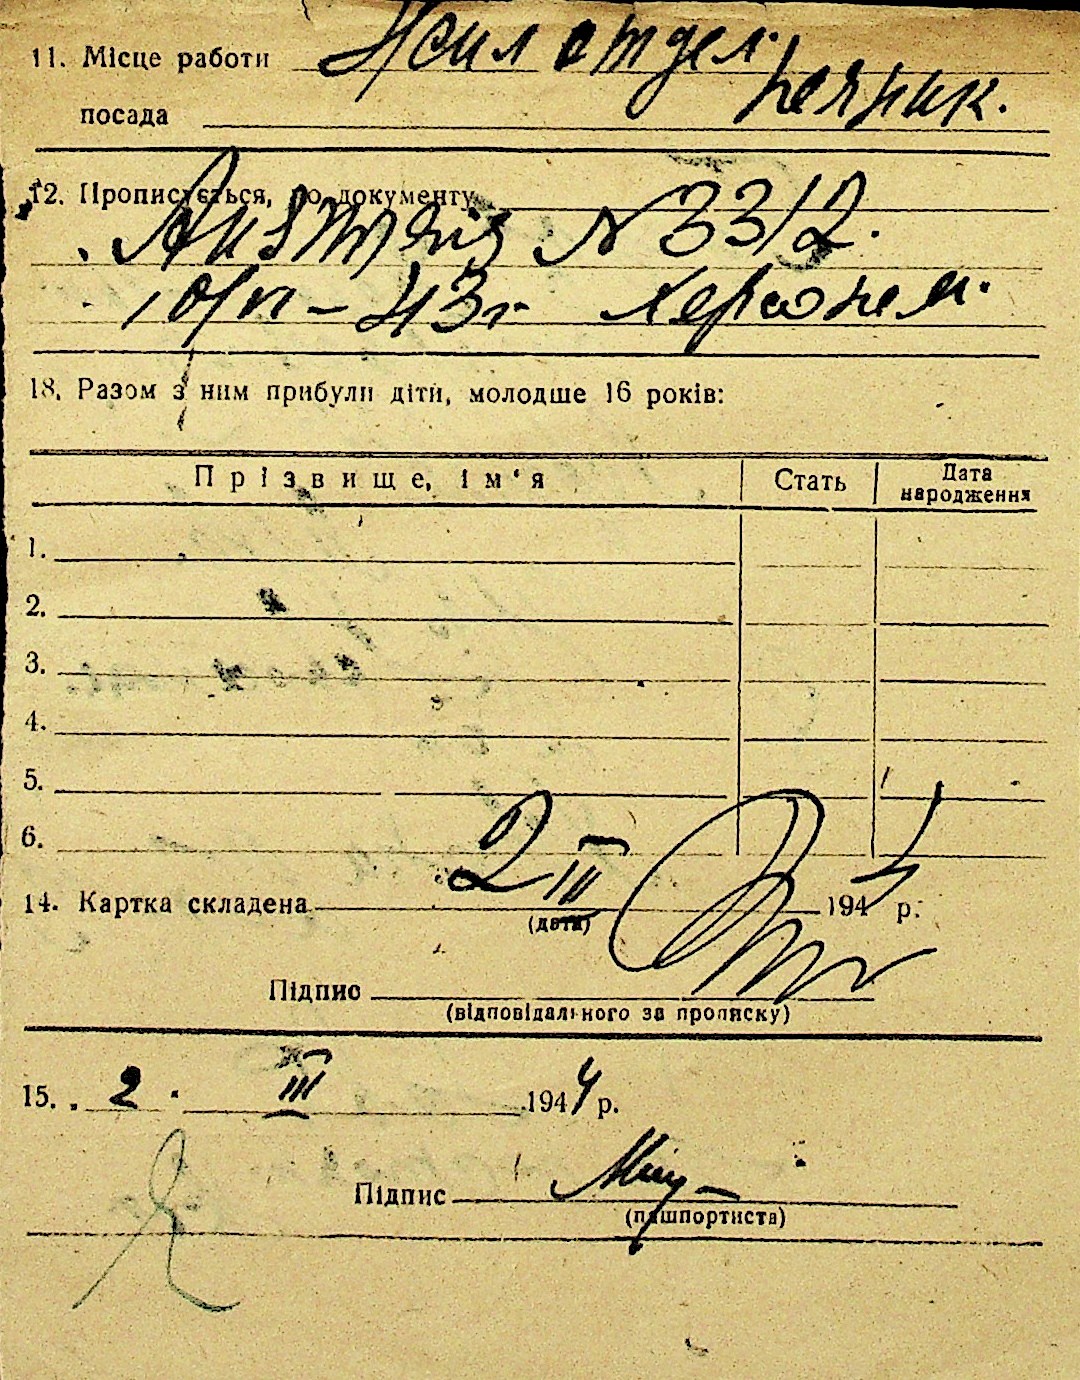 11. Місце работи Жил отдел.
посада печник.
12. Прописується, по документу
Аusвайс N 3312.
10/VI – 43 г. Херсонем.
18. Разом з ним прибули діти, молодше 16 років:
Прізвище, ім‘я Стать Дата народження
1.
2.
3.
4.
5.
6.
14. Картка складена 2 III 1944 р.
(дата)
Підпис
(відповідального за прописку)
15. 2. III 1944 р.
Підпис
(пашпортиста)